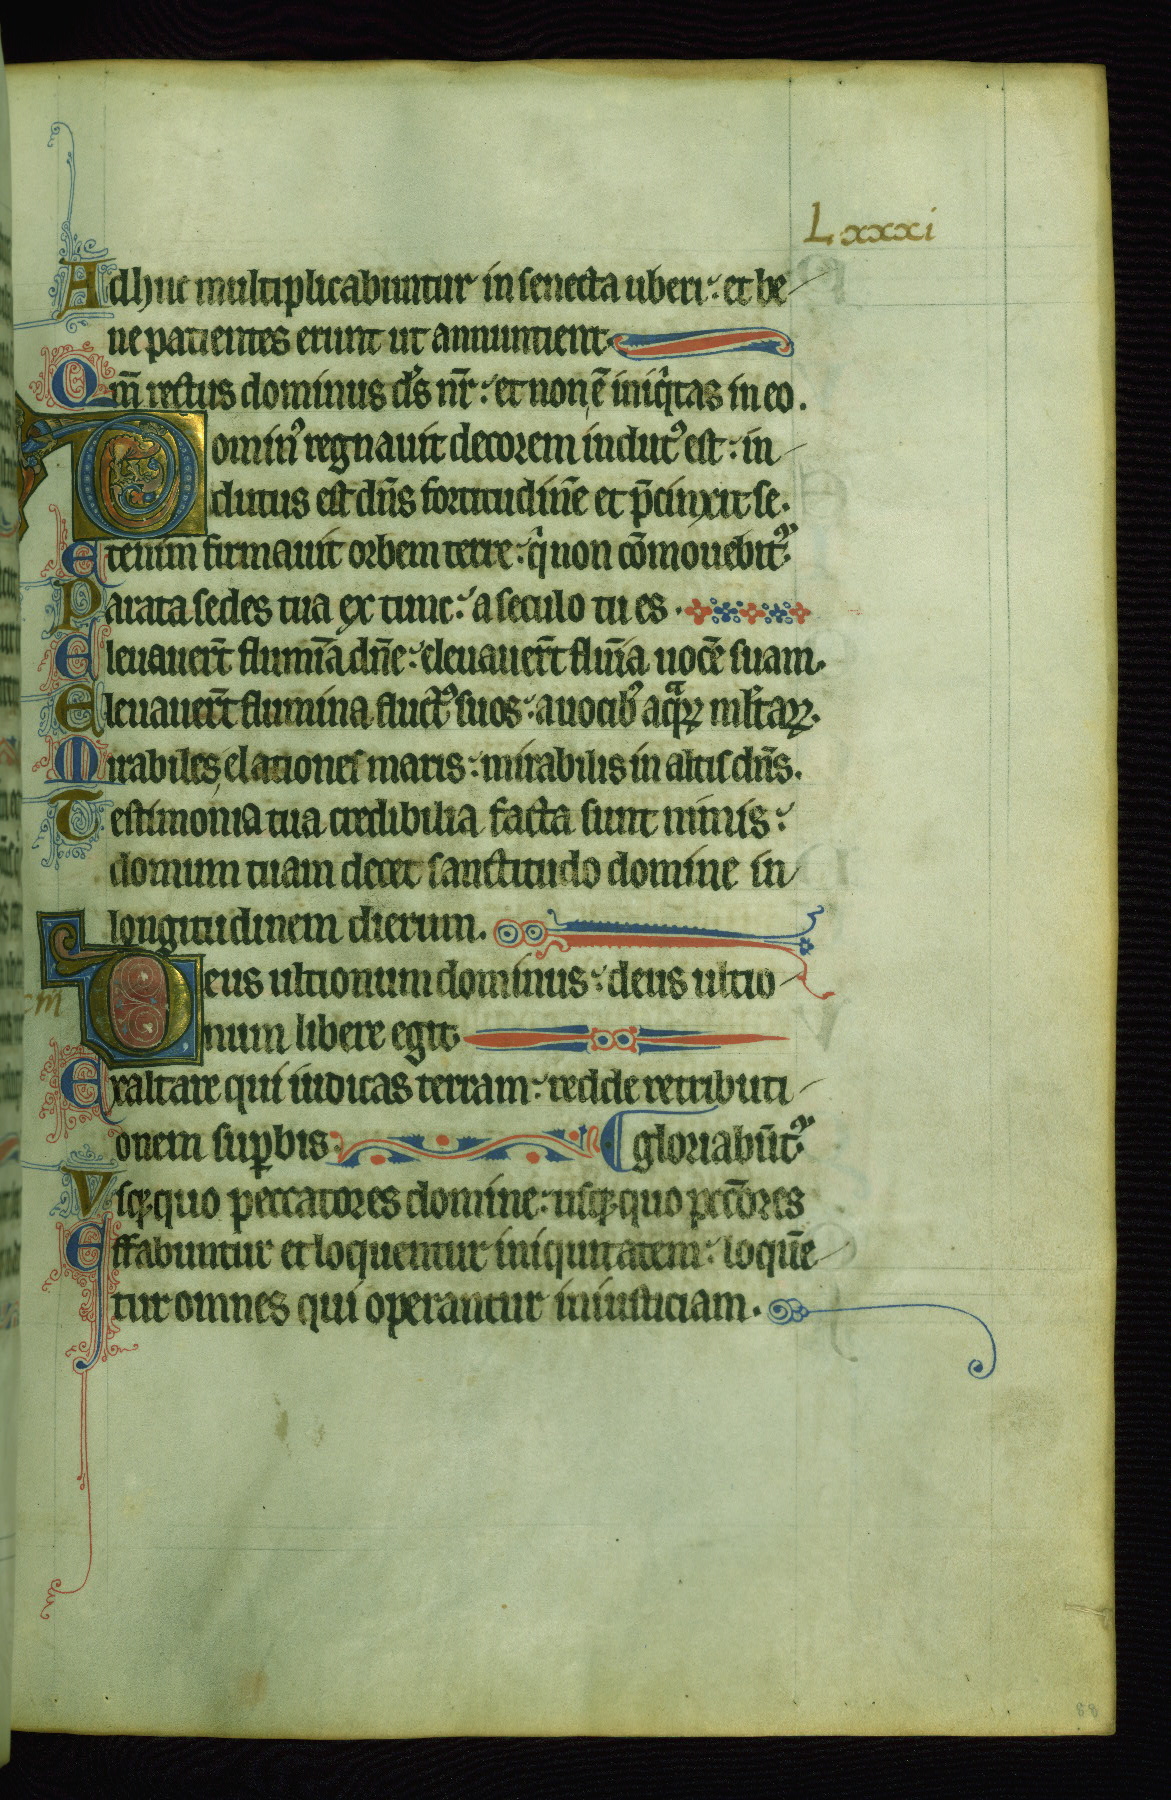 Lxxxi
Adhuc multiplicabuntur in senecta uberi : et be
ne patientes erunt ut annuntient
Qm̄ rectus dominus dꝰs nr̄ : et non ē iniqͥtas in eo .
Dominꝰ regnauit decorem indutꝰ est : in
dutus est dn̄s fortitudinē et p̄cinxit se .
Etenim firmauit orbem terre : qͥ non cōmouebit᷑ .
Parata sedes tua ex tunc : a seculo tu es .
Eleuauer̄t flumīa dn̄e : eleuauer̄t flum̄a uocē suam .
Eleuauer̄t flumina fluctꝰ suos : a uocibꝰ aqᷓꝝ ml̄taꝝ .
Mirabiles elationes maris : mirabilis in altis dn̄s .
Testimonia tua credibilia facta sunt nimis :
domum tuam decet sanctitudo domine in
longitudinem dierum .
cm
Deus ultionum dominus : deus ultio
num libere egit
Exaltare qui iudicas terram : redde retributi
onem suꝑbis . gloriabūt᷑
Vsqꝫ quo peccatores domine : usqꝫ quo pccōres
Effabuntur et loquentur iniquitatem : loquē
tur omnes qui operantur iniusticiam .
88